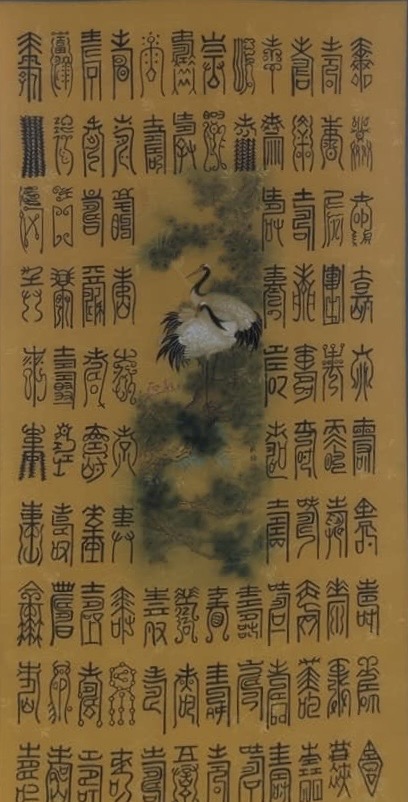 壽壽壽壽壽壽壽壽壽壽
壽壽壽壽壽壽壽壽壽壽
壽壽壽壽壽壽壽壽壽壽
壽壽壽壽壽壽壽壽壽壽
壽壽壽壽壽
壽壽壽壽壽
壽壽壽壽壽
壽壽壽壽壽
壽壽壽壽壽壽壽壽壽壽
壽壽壽壽壽壽壽壽壽壽
壽壽壽壽壽壽壽壽壽壽
壽壽壽壽壽壽壽壽壽壽